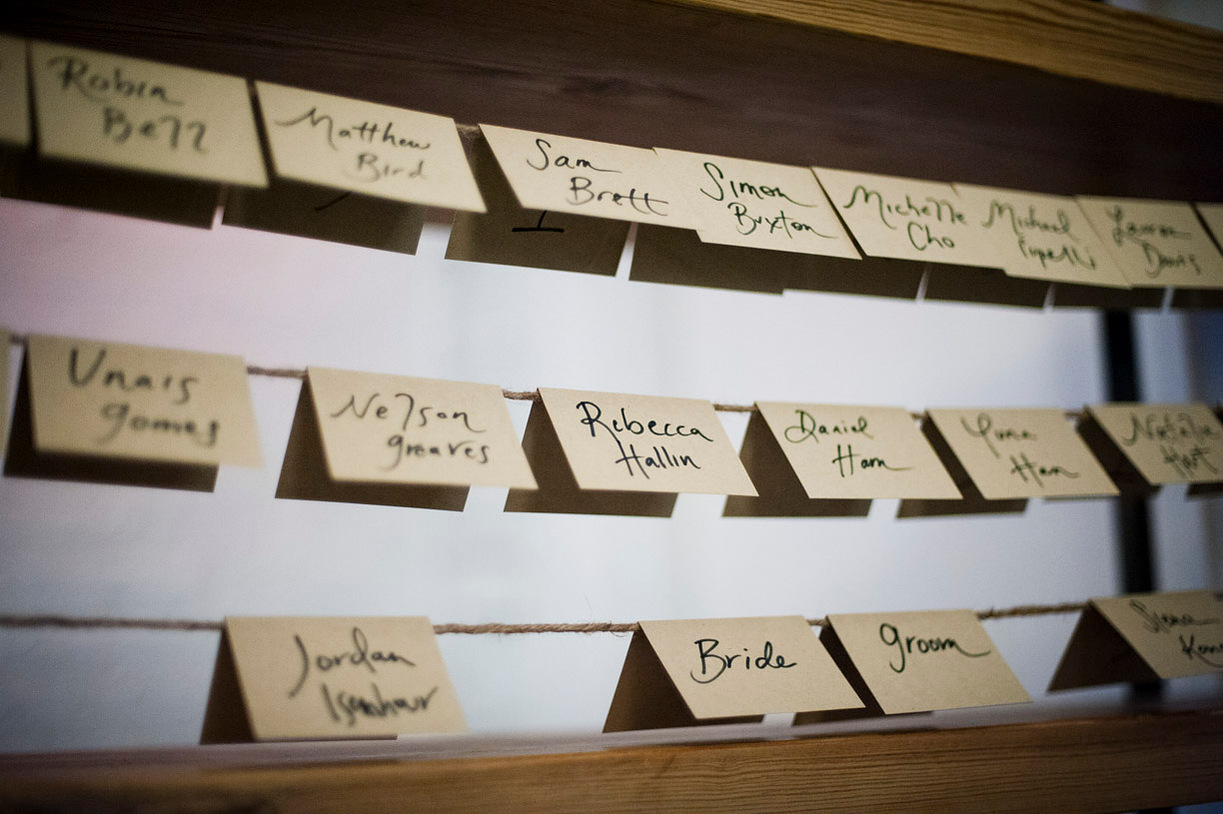 Robin
Bell
Matthew
Bird
Sam
Brett
Simon
Buxton
Michelle
Cho
Michael
Laura
Davis
Unais
Gomes
Nelson
Greaves
Rebecca
Hallin
Daniel
Ham
Yuna
Ham
Natalie
Hart
Jordan
Isenhour
Bride
Groom